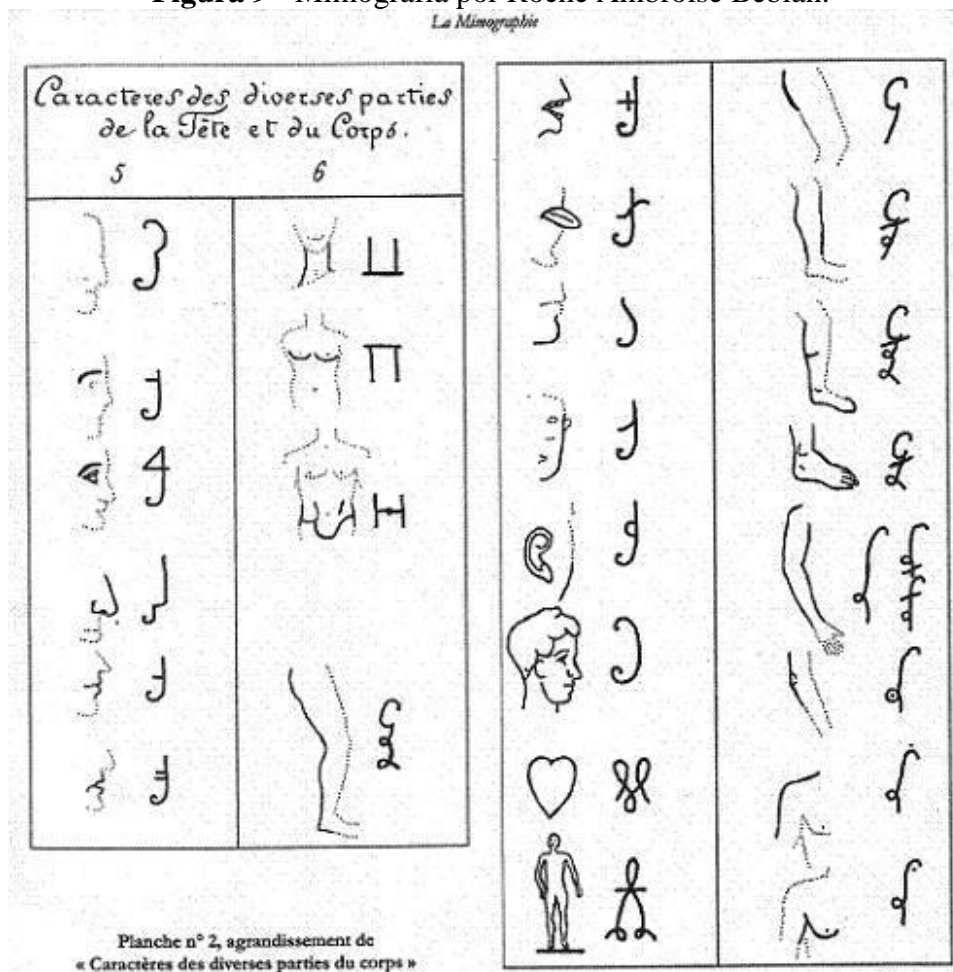 Figura 9 - Mimografia por Roche Ambroise Bébian.
La Mimographie
Caracteres des diverses parties
de la Tête et du Corps.
5 6
Planche n° 2, agrandissement de
« Caractères des diverses parties du corps »